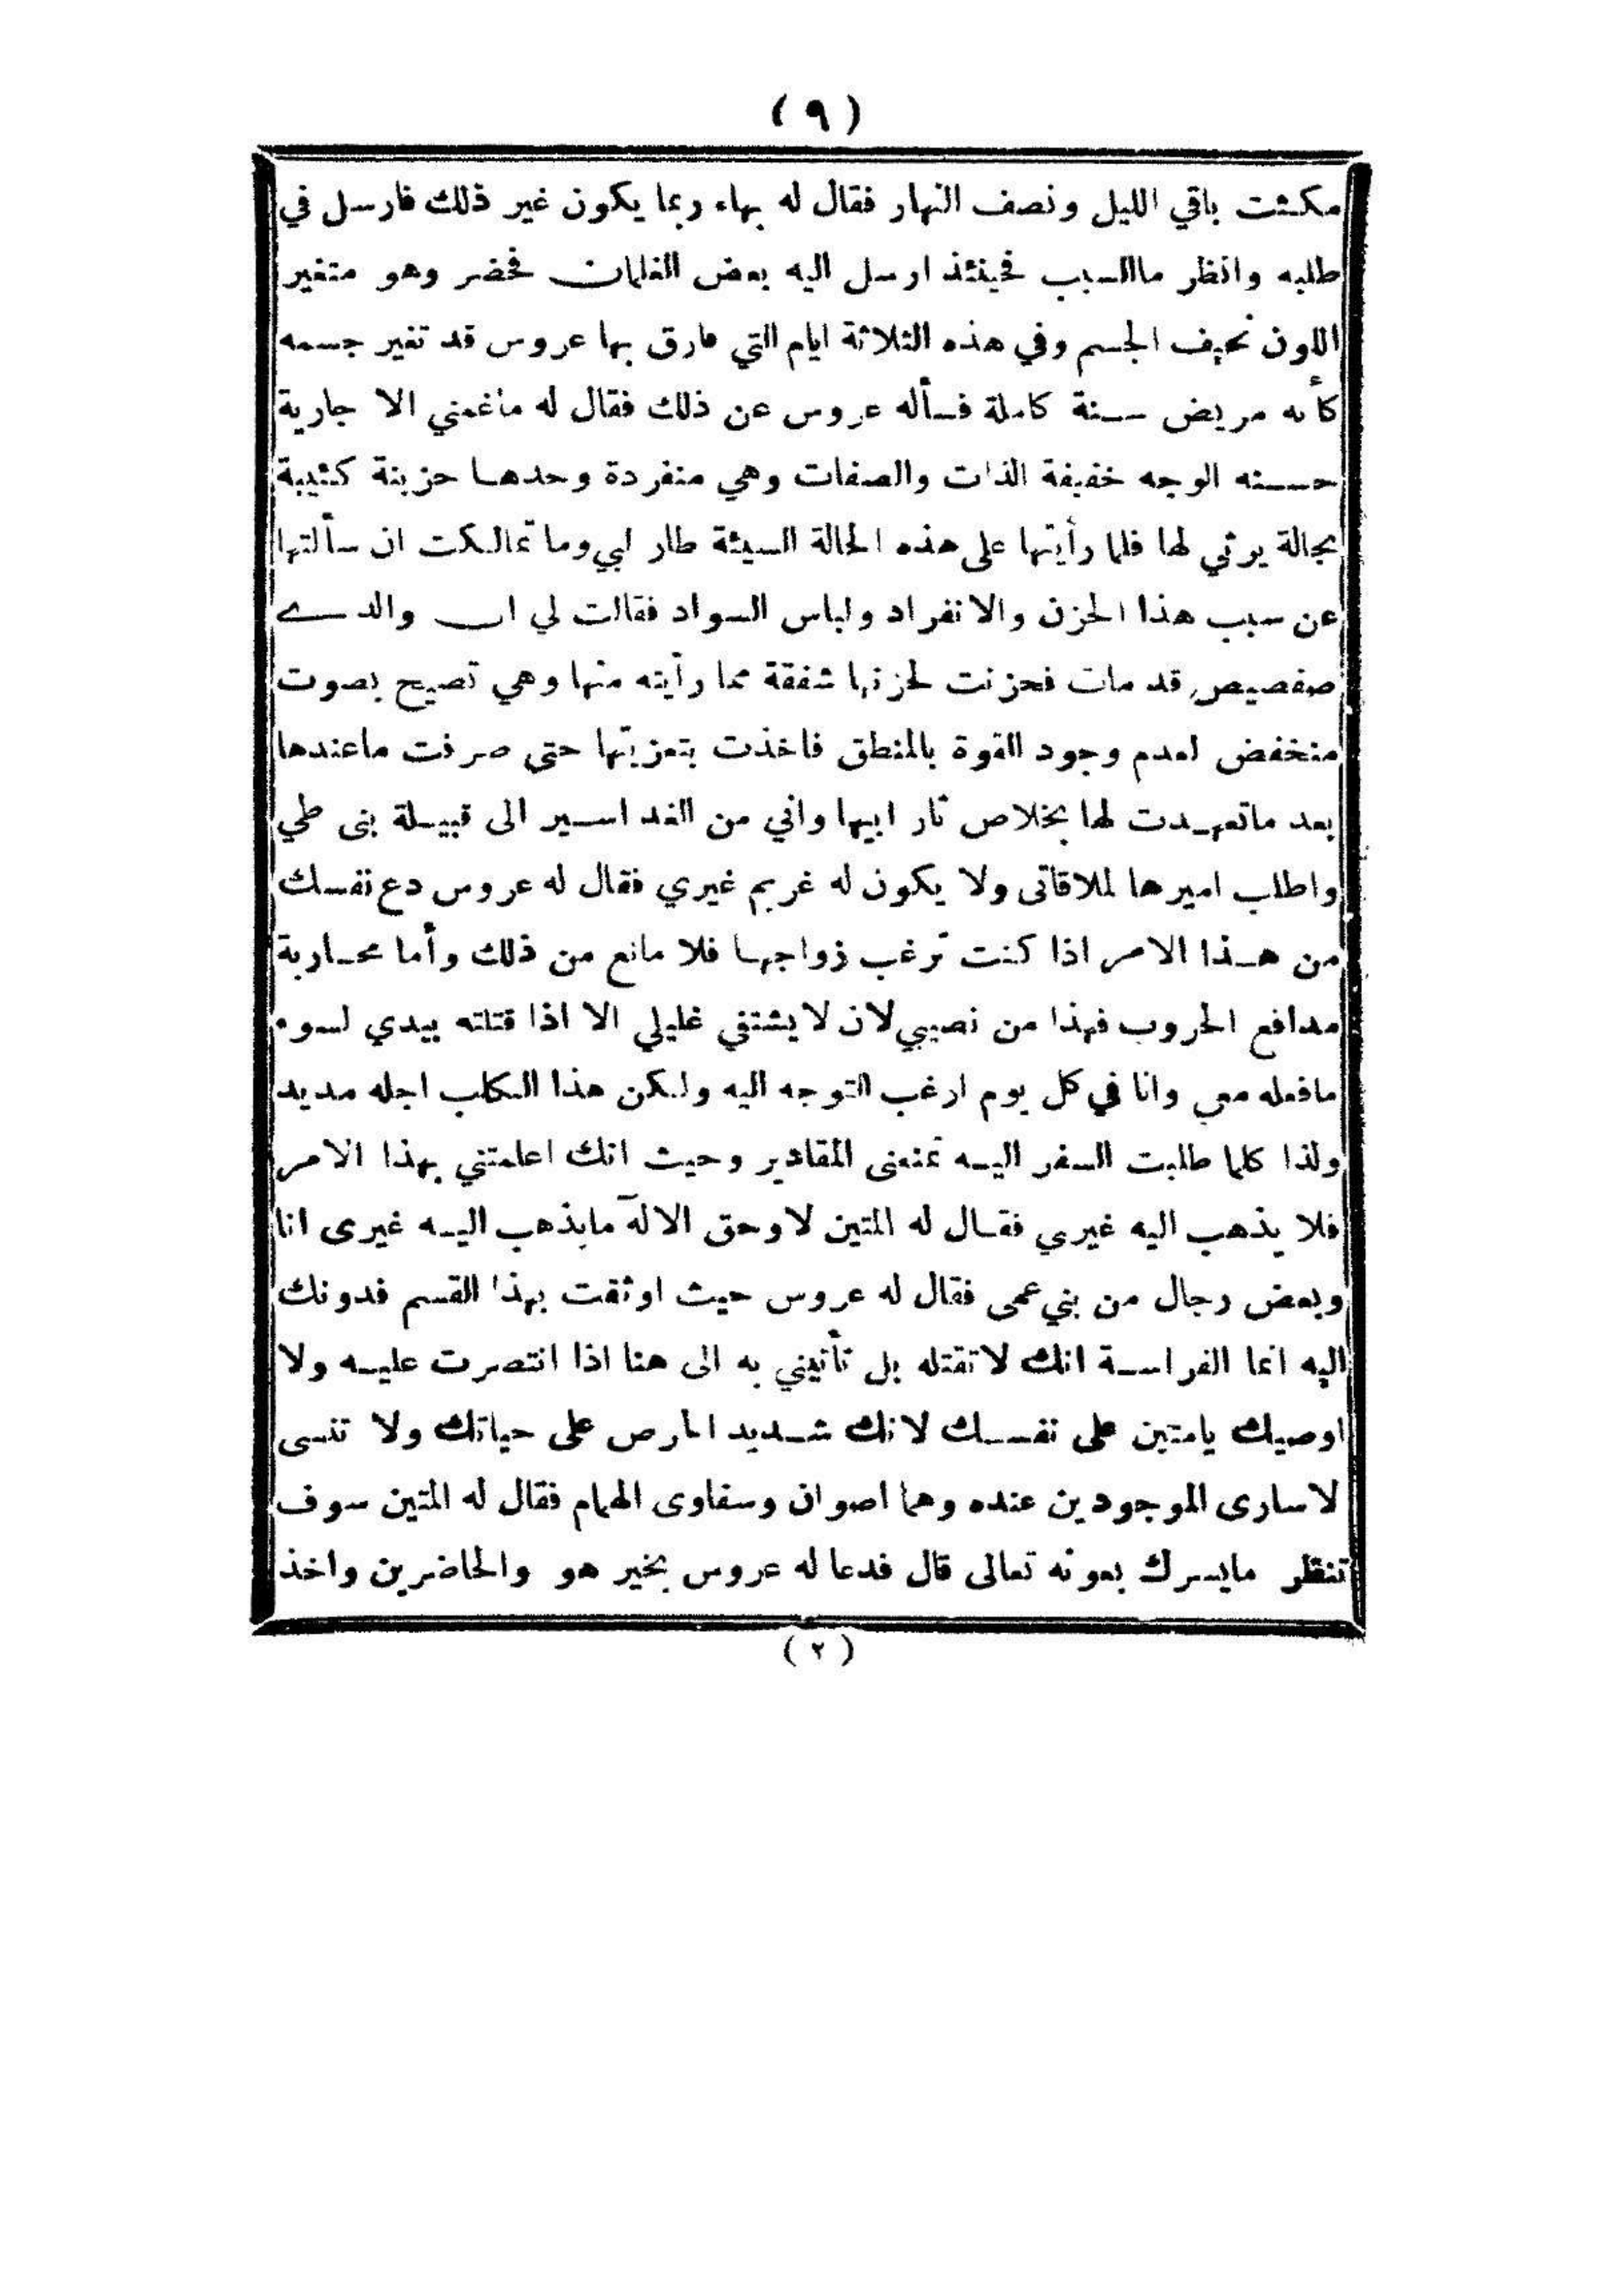 (٩)
مكثت باقي الليل ونصف النهار فقال له بهاء ربما يكون غير ذلك فارسل في
طلبه وانظر ماالسبب فحينئذ ارسل اليه بعض الغلمان فحضر وهو متغير
اللون نحيف الجسم وفي هذه الثلاثة ايام التي فارق بها عروس قد تغير جسمه
كأنه مريض سنة كاملة فسأله عروس عن ذلك فقال له ماغمني الا جارية
حسنه الوجه خفيفة الذات والصفات وهي منفردة وحدها حزينة كئيبة
بحالة يرثي لها فلما رأيتها على هذه الحالة السيئة طار لبي وما تمالكت ان سألتها
عن سبب هذا الحزن والانفراد ولباس السواد فقالت لي ان والدي
صفصيص قد مات فحزنت لحزنها شفقة مما رأيته منها وهي تصيح بصوت
منخفض لعدم وجود القوة بالمنطق فاخذت بتعزيتها حتى صرفت ماعندها
بعد ماتعهدت لها بخلاص ثار ابيها واني من الغد اسير الى قبيلة بنى طي
واطلب اميرها لملاقاتى ولا يكون له غريم غيري فقال له عروس دع نفسك
من هذا الامر اذا كنت ترغب زواجها فلا مانع من ذلك وأما محاربة
مدافع الحروب فهذا من نصيبي لان لايشتفي غليلي الا اذا قتلته بيدي لسوء
مافعله معي وانا في كل يوم ارغب التوجه اليه ولكن هذا الكلب اجله مديد
ولذا كلما طلبت السفر اليه تمنعنى المقادير وحيث انك اعلمتني بهذا الامر
فلا يذهب اليه غيري فقال له المتين لاوحق الاله مايذهب اليه غيرى انا
وبعض رجال من بني عمى فقال له عروس حيث اوثقت بهذا القسم فدونك
اليه انما الفراسة انك لاتقتله بل تأتيني به الى هنا اذا انتصرت عليه ولا
اوصيك يامتين على نفسك لانك شديد الحرص على حياتك ولا تنسى
لاسارى الموجودين عنده وهما اصوان وسفاوى الهمام فقال له المتين سوف
تنظر مايسرك بعونه تعالى قال فدعا له عروس بخير هو والحاضرين واخذ
(٢)